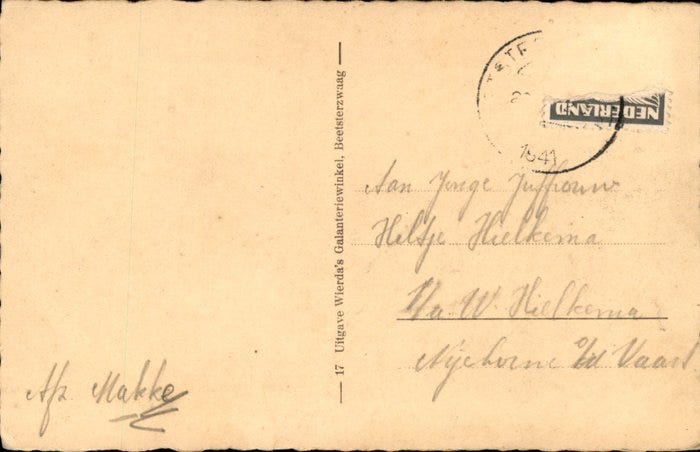 NEDERLAND
1941
Aan Jonge Juffrouw
Hiltje Hielkema
p/a W. Hielkema
Nijehorne o/d Vaart
Afz Makke
17 Uitgave Wierda's Galanteriewinkel, Beetsterzwaag